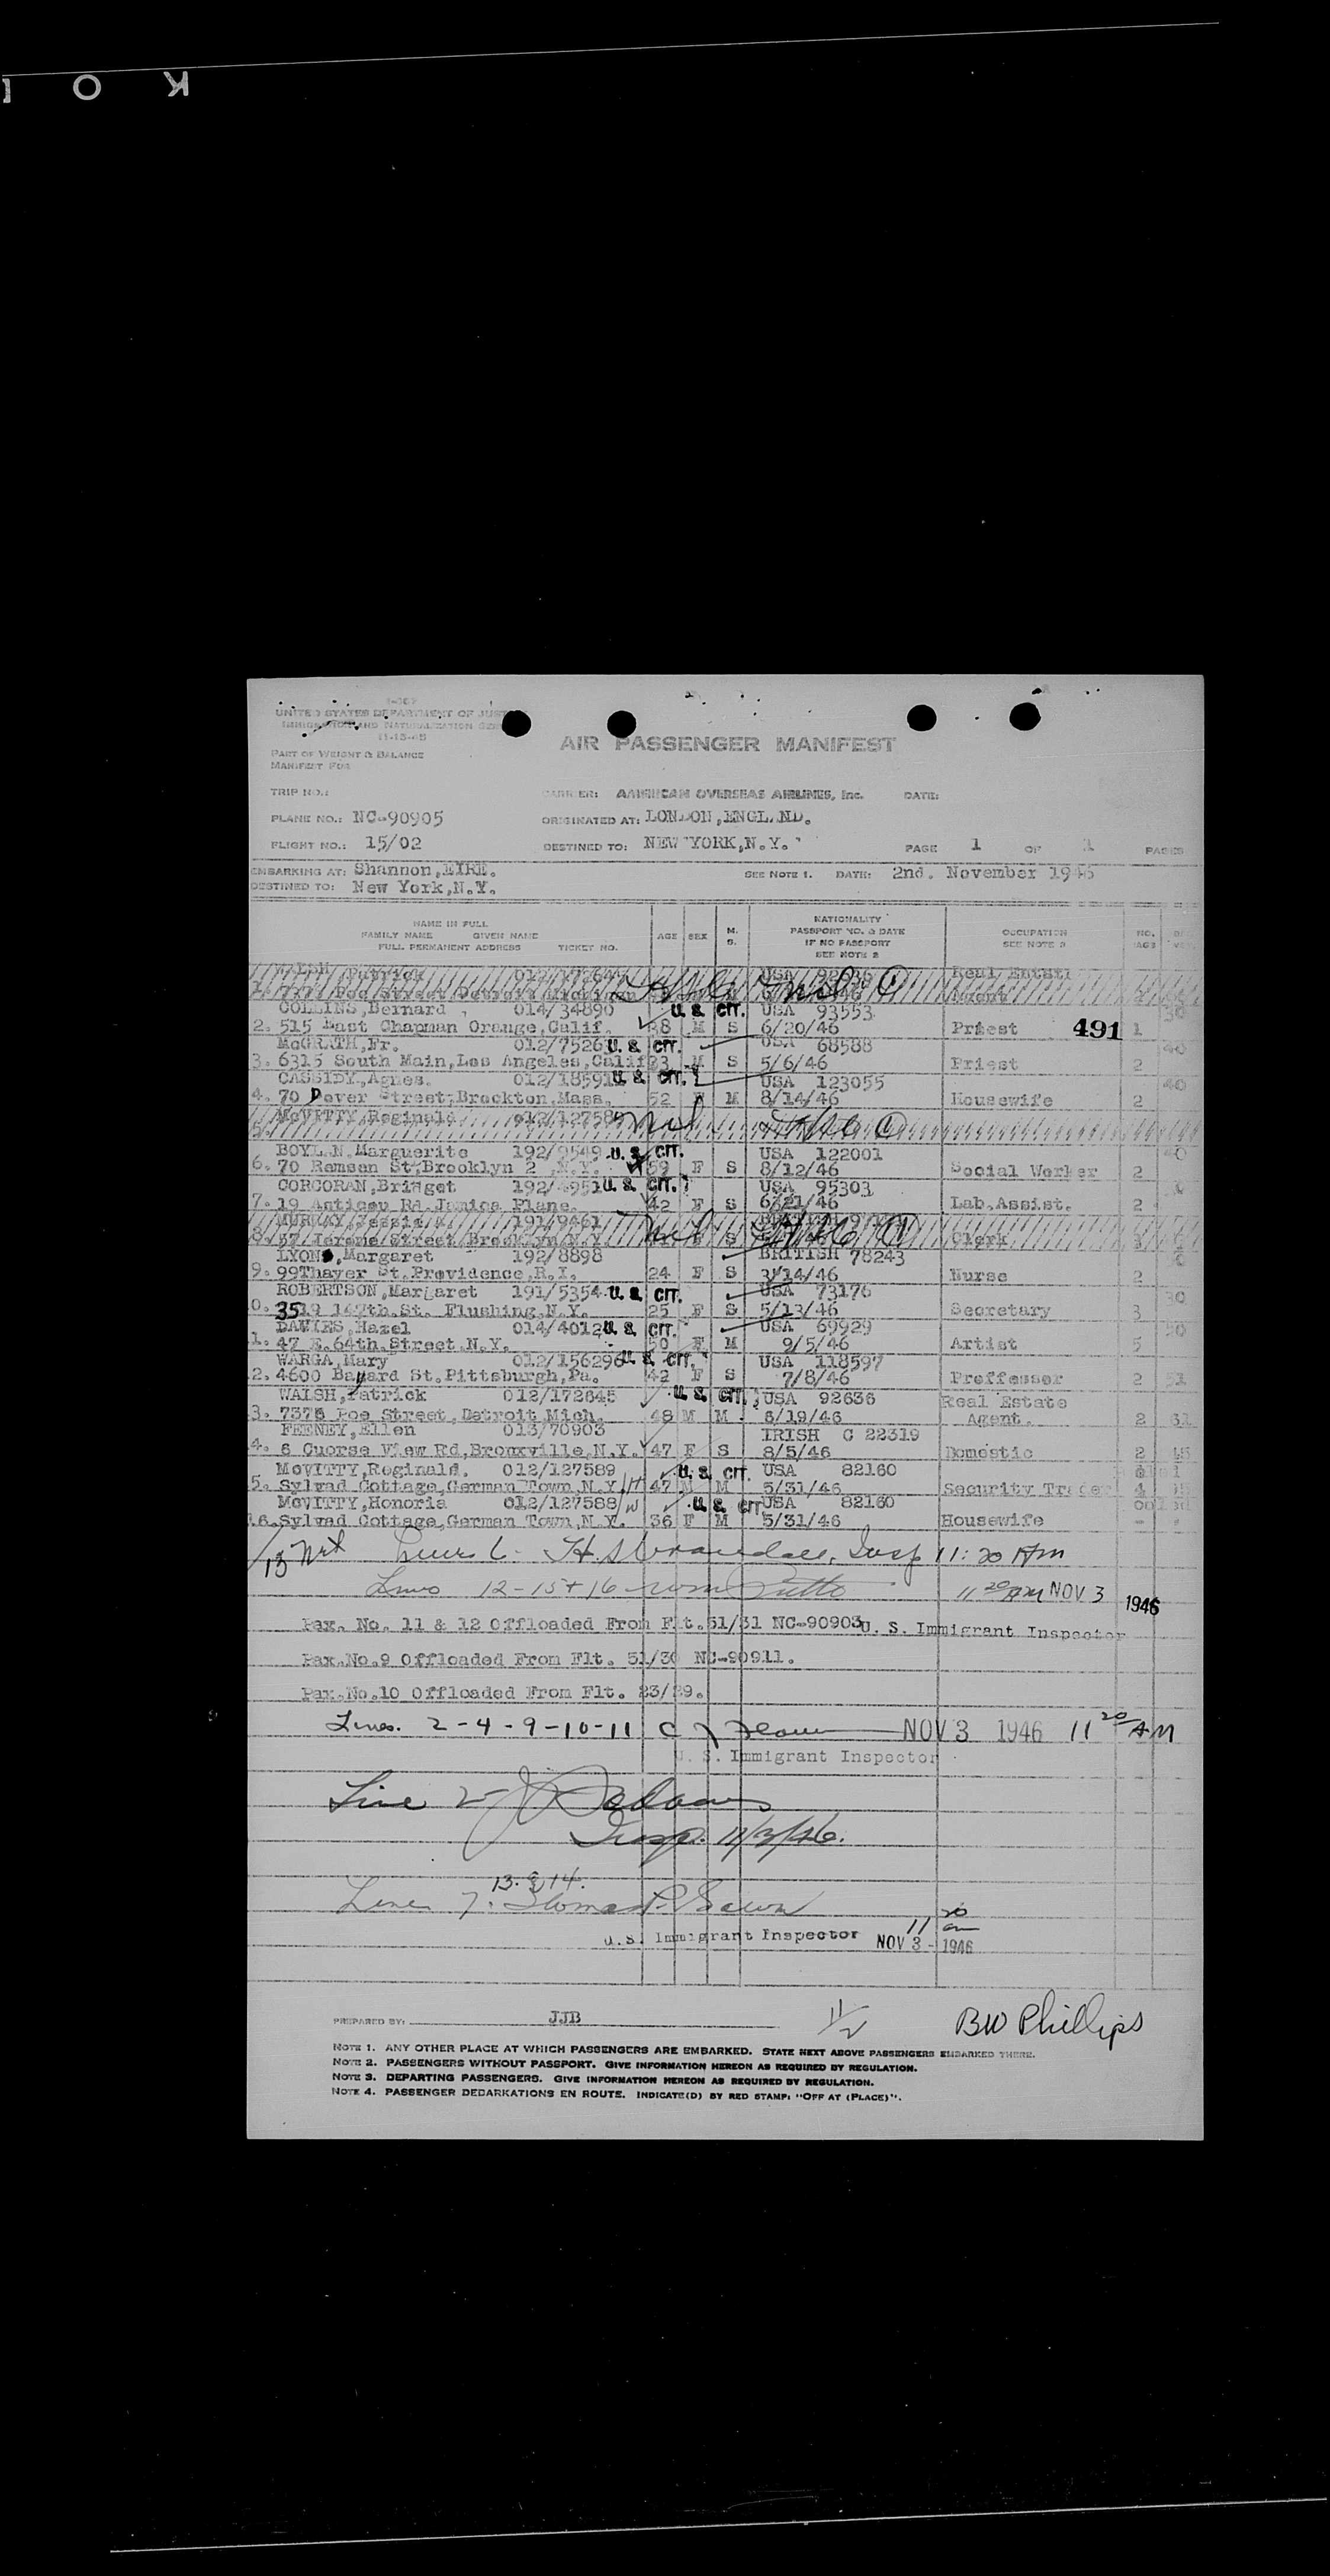 K O
I-467
UNITED STATES DEPARTMENT OF JUST
IMMIGRATION AND NATURALIZATION SER
11-13-45
AIR PASSENGER MANIFEST
PART OF WEIGHT & BALANCE
MANIFEST FOR
TRIP NO.: CARRIER: AMERICAN OVERSEAS AIRLINES, Inc. DATE:
PLANE NO.: NC-90905 ORIGINATED AT: LONDON,ENGLAND.
FLIGHT NO.: 15/02 DESTINED TO: NEW YORK,N.Y. PAGE 1 OF 1 PAGES
EMBARKING AT: Shannon,EIRE. SEE NOTE 1. DATE: 2nd. November 1946
DESTINED TO: New York,N.Y.
NAME IN FULL
FAMILY NAME GIVEN NAME
FULL PERMANENT ADDRESS TICKET NO.
AGE SEX M. S.
NATIONALITY
PASSPORT NO. & DATE
IF NO PASSPORT
SEE NOTE 2
OCCUPATION
SEE NOTE 3
NO.
Patrick USA Real Estate
1. Poe Street Detroit Michigan Agent
COLLINS,Bernard , 014/34890 U. S. CIT. USA 93553
2. 515 East Chapman Orange,Calif. 38 M S 6/20/46 Priest 491 1
McGRATH,Fr. 012/7526 U. S. CIT. USA 68588
3. 6315 South Main,Los Angeles,Calif 33 M S 5/6/46 Priest 2
CASSIDY,Agnes. 012/18591 U. S. CIT. USA 123055
4. 70 Dover Street,Brockton,Mass. 52 F M 8/14/46 Housewife 2
McVITTY,Reginald 012/12758
BOYLAN,Marguerite 192/9549 U. S. CIT. USA 122001
6. 70 Remsen St,Brooklyn 2 ,N.Y. 59 F S 8/12/46 Social Worker 2
CORCORAN,Bridget 192/4951 U. S. CIT. USA 95303
7. 19 Anticou Rd.Jamica Plane. 42 F S 6/21/46 Lab.Assist. 2
MURRAY,Jessie 191/9461
8. 57 Jerome Street Brooklyn N.Y. S Clerk
LYONS,Margaret 192/8898 BRITISH 78243
9. 99Thayer St.Providence,R.I. 24 F S 3/14/46 Nurse 2
ROBERTSON,Margaret 191/5354 U. S. CIT. USA 73176
0. 3519 147th.St. Flushing,N.Y. 25 F S 5/13/46 Secretary 3
DAVIES,Hazel 014/4012 U. S. CIT. USA 69929
1. 47 E.64th.Street.N.Y. 50 F M 9/5/46 Artist 5
WARGA,Mary 012/156296 U. S. CIT. USA 118597
2. 4600 Bayard St.Pittsburgh,Pa. 42 F S 7/8/46 Proffesser 2 51
WALSH,Patrick 012/172645 U. S. CIT. USA 92636 Real Estate
3. 7375 Poe Street,Detroit,Mich. 48 M M 6/19/46 Agent. 2 61
FEENEY,Ellen 013/70903 IRISH C 22319
4. 8 Guorse View Rd,Bronxville,N.Y. 47 F S 8/5/46 Domestic 2 45
McVITTY,Reginald. 012/127589 U. S. CIT. USA 82160
5. Sylvad Cottage,German Town,N.Y. H 47 M M 5/31/46 Security Trader 4
McVITTY,Honoria 012/127588 W U. S. CIT USA 82160
16. Sylvad Cottage,German Town,N.Y. 36 F M 5/31/46 Housewife
13 Insp 11:20 AM
Lines 12-15+16 11 20 AM NOV 3 1946
Pax. No. 11 & 12 Offloaded From Flt.51/31 NC-90903 U. S. Immigrant Inspector
Pax.No.9 Offloaded From Flt. 51/30 NC-90911.
Pax.No.10 Offloaded From Flt. 23/29.
Lines. 2-4-9-10-11 NOV 3 1946 11 20 AM
U. S. Immigrant Inspector
Line
Insp. 11/3/46.
13. & 14.
Lines 7. Thomas P.
U.S. Immigrant Inspector NOV 3 - 1946
11 20 am
PREPARED BY: JJB 11/2 BW Phillips
NOTE 1. ANY OTHER PLACE AT WHICH PASSENGERS ARE EMBARKED. STATE NEXT ABOVE PASSENGERS EMBARKED THERE.
NOTE 2. PASSENGERS WITHOUT PASSPORT. GIVE INFORMATION HEREON AS REQUIRED BY REGULATION.
NOTE 3. DEPARTING PASSENGERS. GIVE INFORMATION HEREON AS REQUIRED BY REGULATION.
NOTE 4. PASSENGER DEBARKATIONS EN ROUTE. INDICATE(D) BY RED STAMP: "OFF AT (PLACE)".